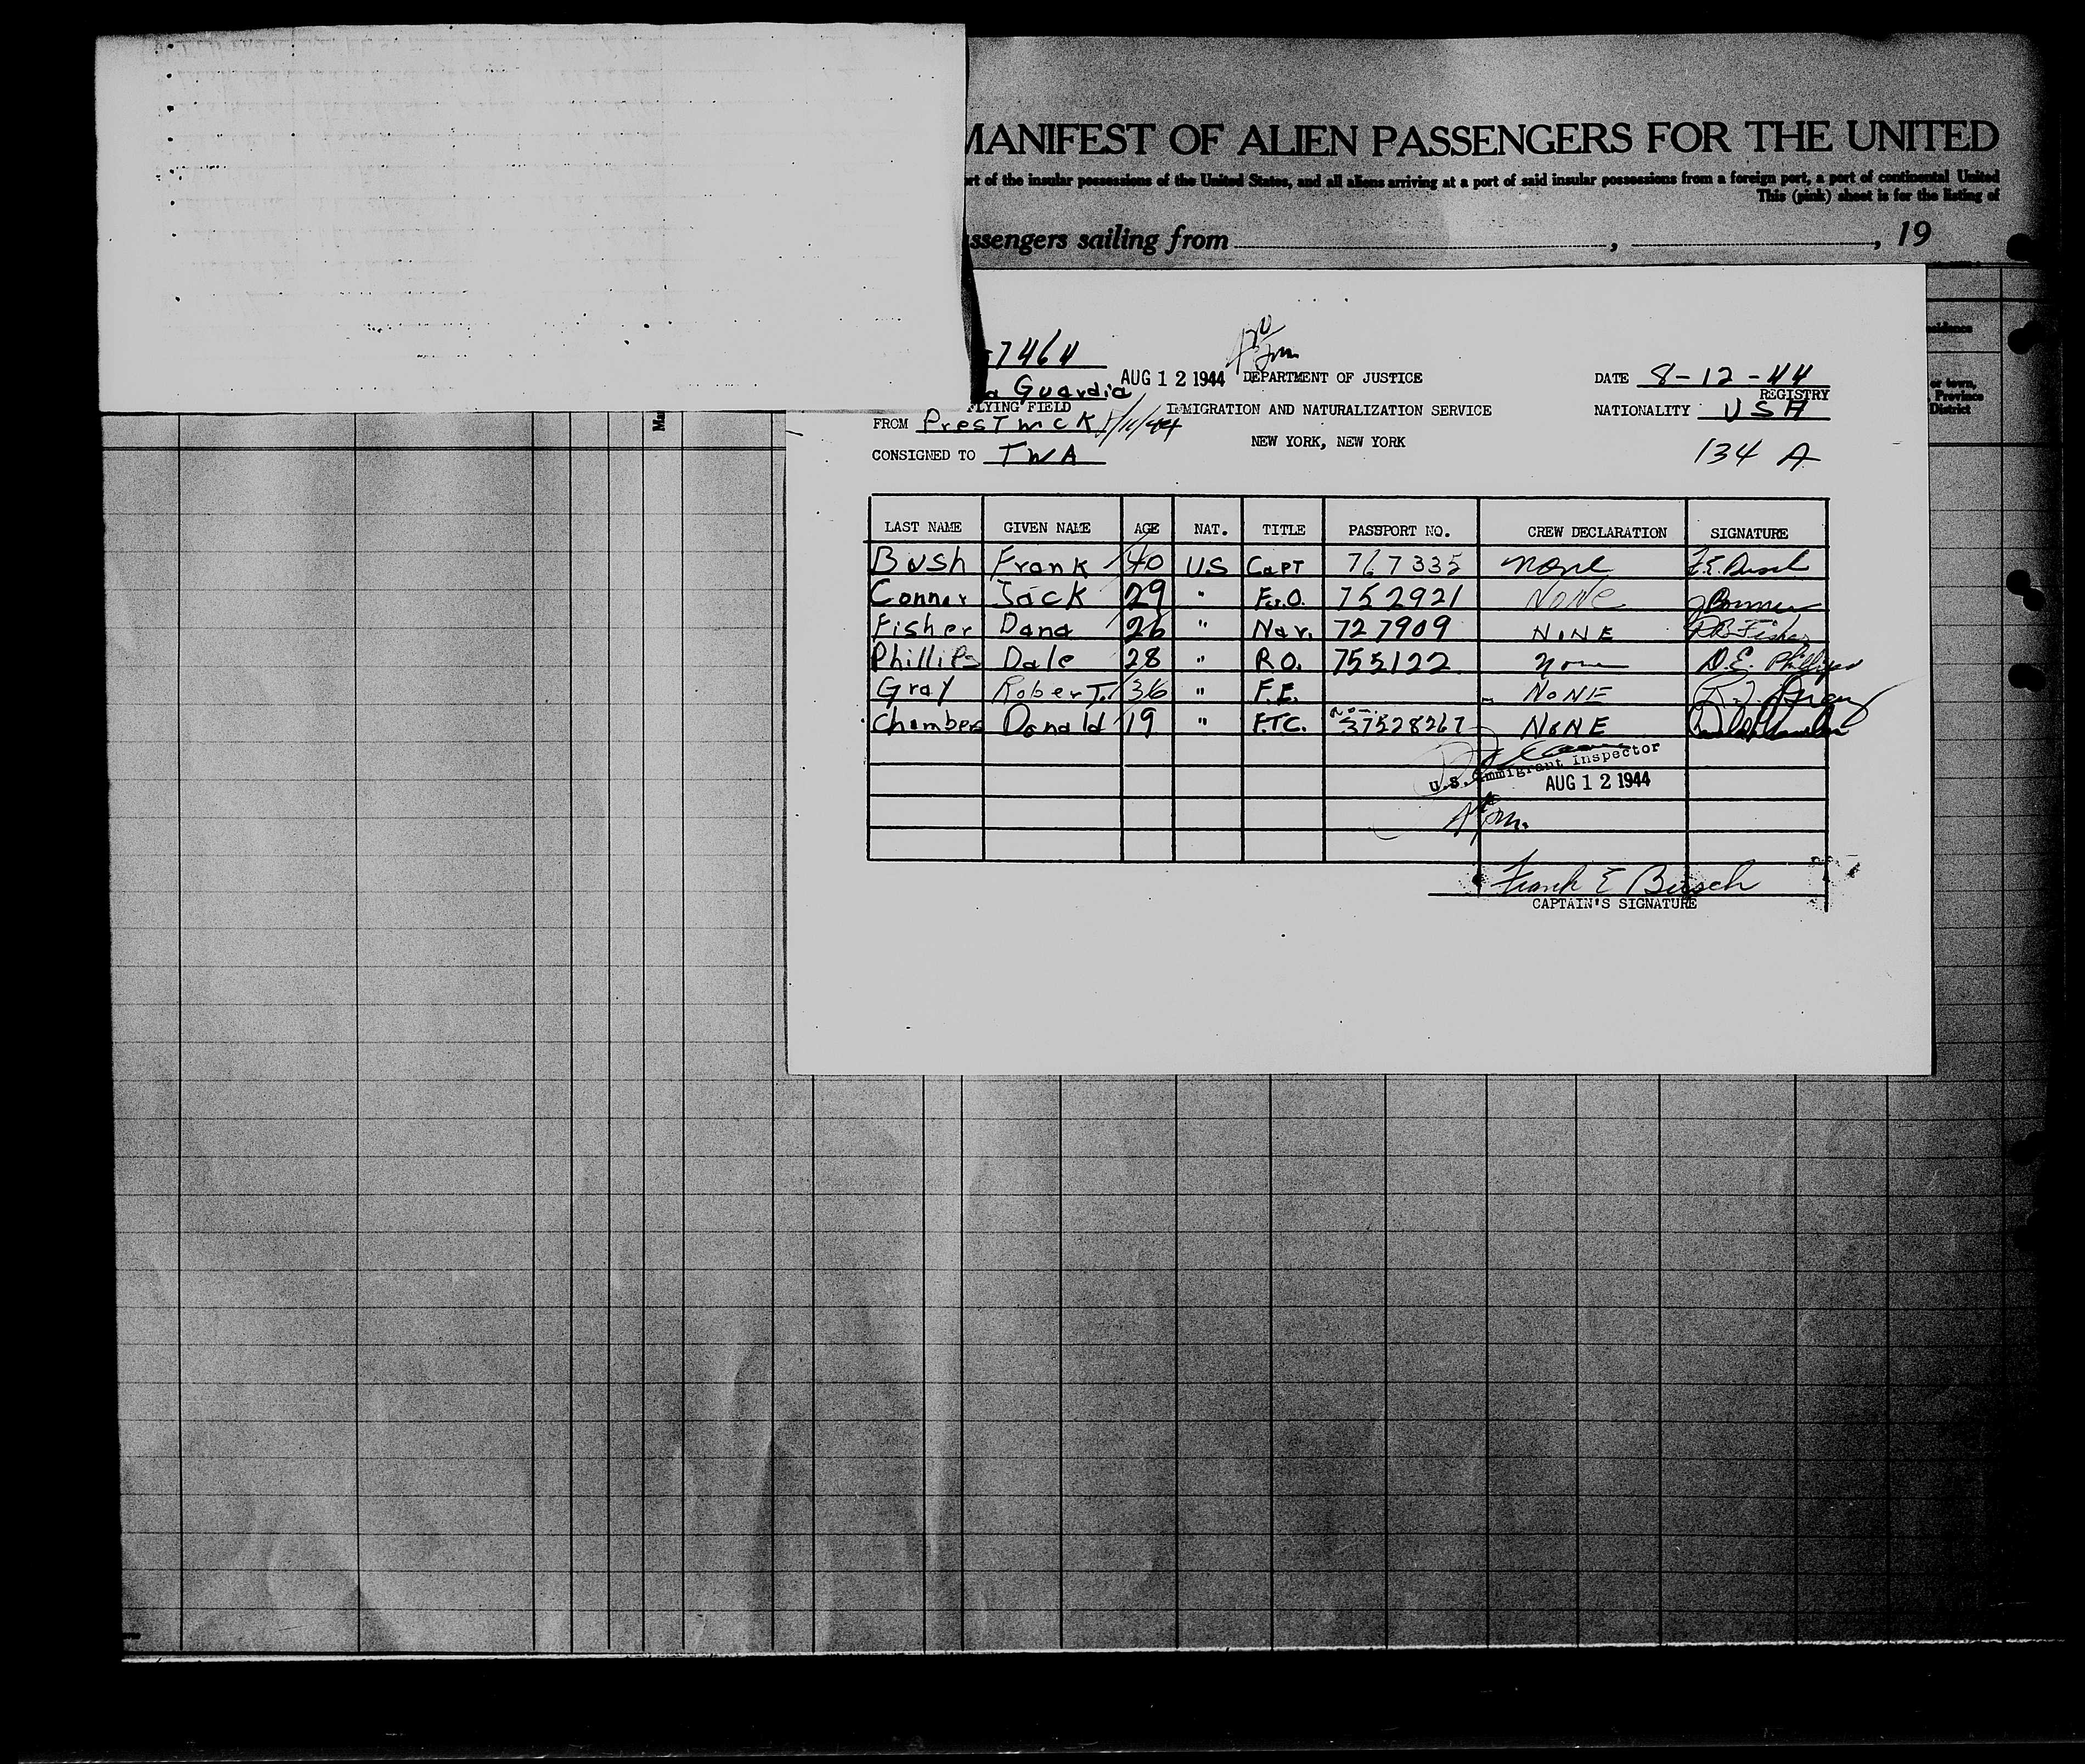 MANIFEST OF ALIEN PASSENGERS FOR THE UNITED
of the insular possessions of the United States, and all aliens arriving at a port of said insular possessions from a foreign port, a port of continental United
This (pink) sheet is for the listing of
ssengers sailing from , , 19
-7464
a Guardia AUG 12 1944 DEPARTMENT OF JUSTICE DATE 8-12-44
FLYING FIELD IMMIGRATION AND NATURALIZATION SERVICE NATIONALITY USA REGISTRY
FROM PresTwick 8/11/44
NEW YORK, NEW YORK
CONSIGNED TO TWA 134 A
LAST NAME GIVEN NAME AGE NAT. TITLE PASSPORT NO. CREW DECLARATION SIGNATURE
Bush Frank 40 US CaPT 767335 None F.E. Busch
Conner Jack 29 " F.O. 752921 NONE J Conner
Fisher Dana 26 " Nav. 727909 NONE Fisher
Phillips Dale 28 " RO. 755122 None D.E. Phillips
Gray Robert T. 36 " F.E. NONE R.T. Gray
Chambers Donald 19 " F.T.C. 37528267 NONE
U.S. Immigrant Inspector
AUG 12 1944
Frank E Busch
CAPTAIN'S SIGNATURE
or town,
Province
District